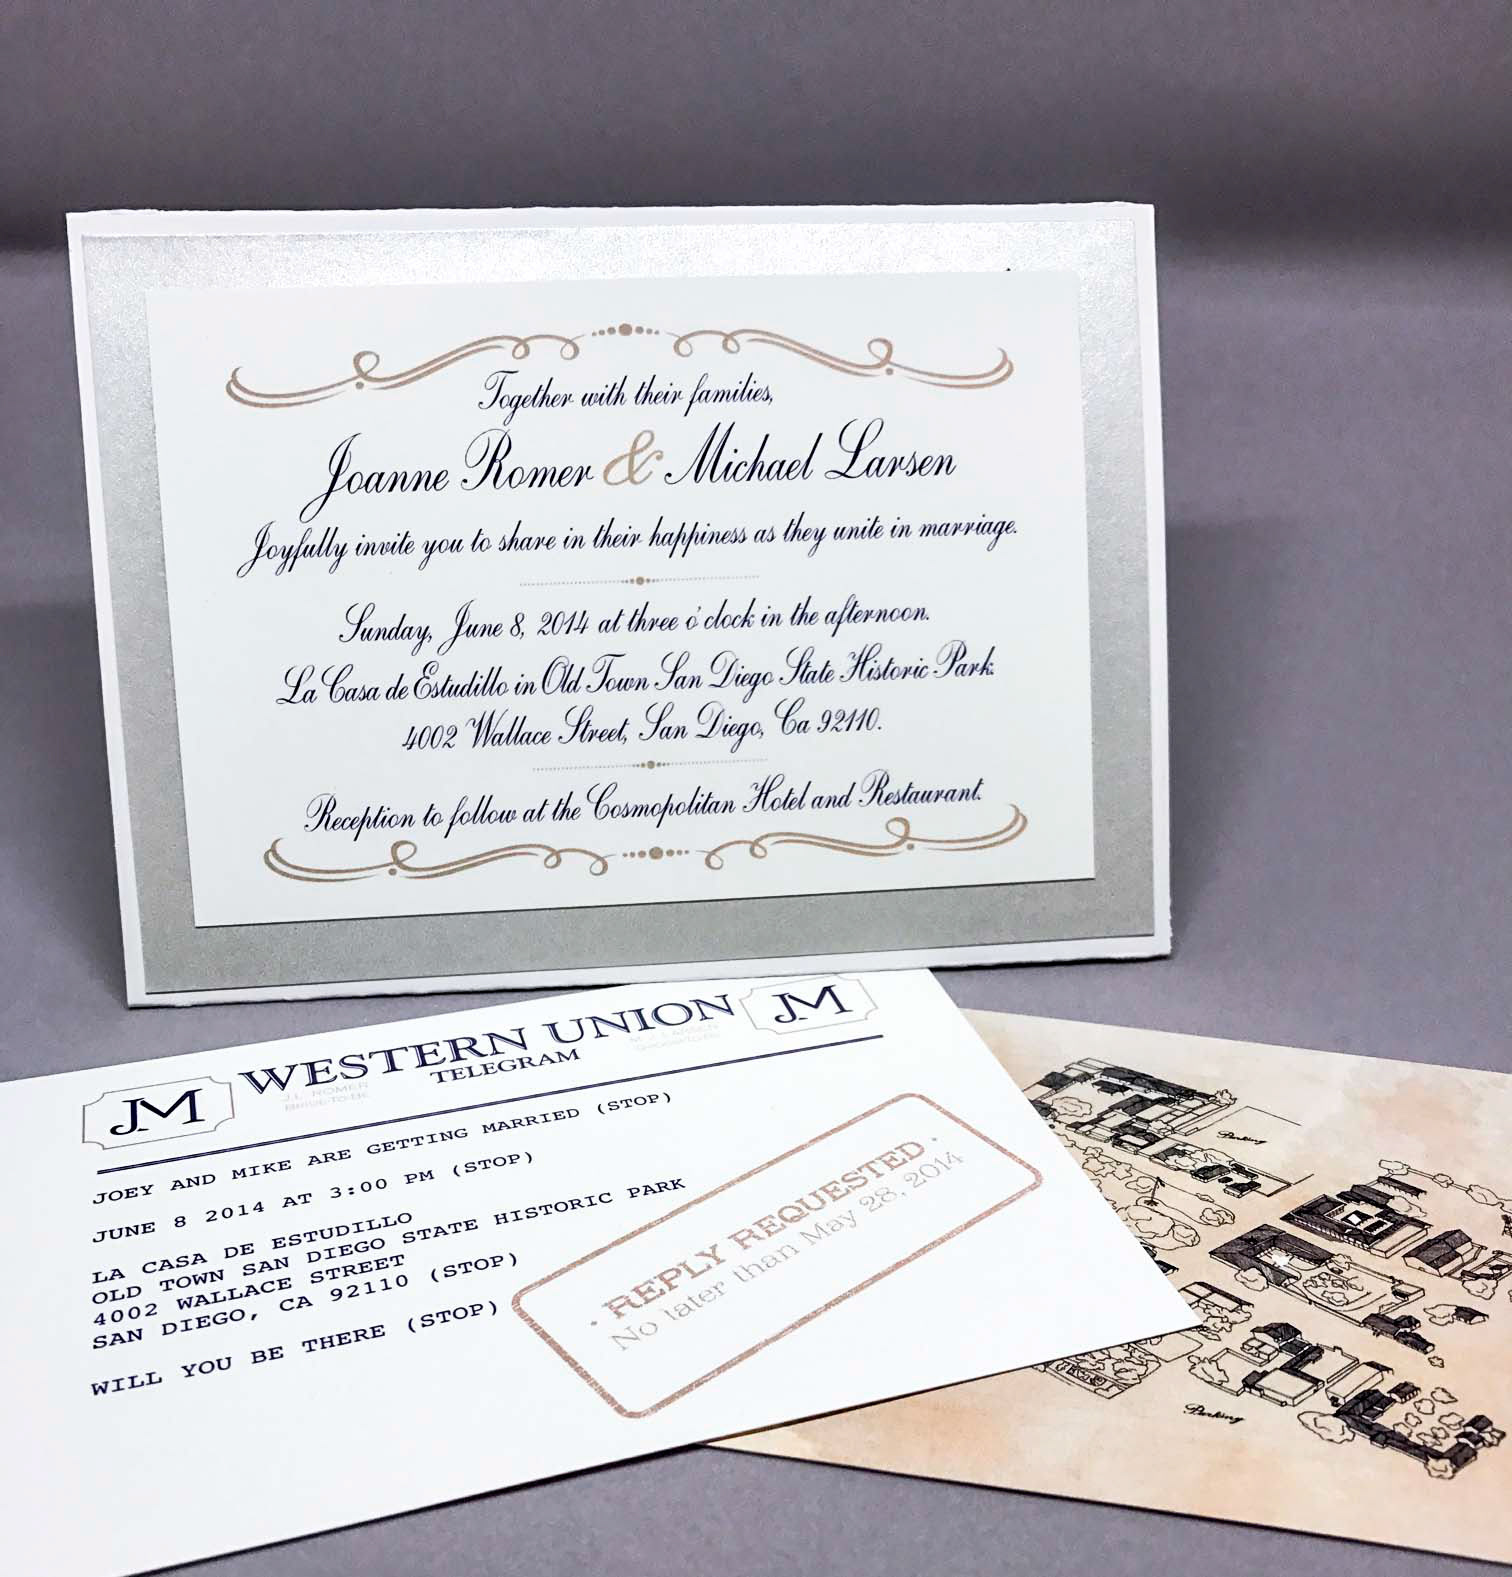 Together with their families,
Joanne Romer & Michael Larsen
Joyfully invite you to share in their happiness as they unite in marriage.
Sunday, June 8, 2014 at three o'clock in the afternoon.
La Casa de Estudillo in Old Town San Diego State Historic Park.
4002 Wallace Street, San Diego, Ca 92110.
Reception to follow at the Cosmopolitan Hotel and Restaurant.
JM WESTERN UNION JM
TELEGRAM
J.L. ROMER
BRIDE-TO-BE
M. J. LARSEN
GROOM-TO-BE
JOEY AND MIKE ARE GETTING MARRIED (STOP)
JUNE 8 2014 AT 3:00 PM (STOP)
LA CASA DE ESTUDILLO
OLD TOWN SAN DIEGO STATE HISTORIC PARK
4002 WALLACE STREET
SAN DIEGO, CA 92110 (STOP)
WILL YOU BE THERE (STOP)
· REPLY REQUESTED ·
No later than May 28, 2014
Parking
Parking